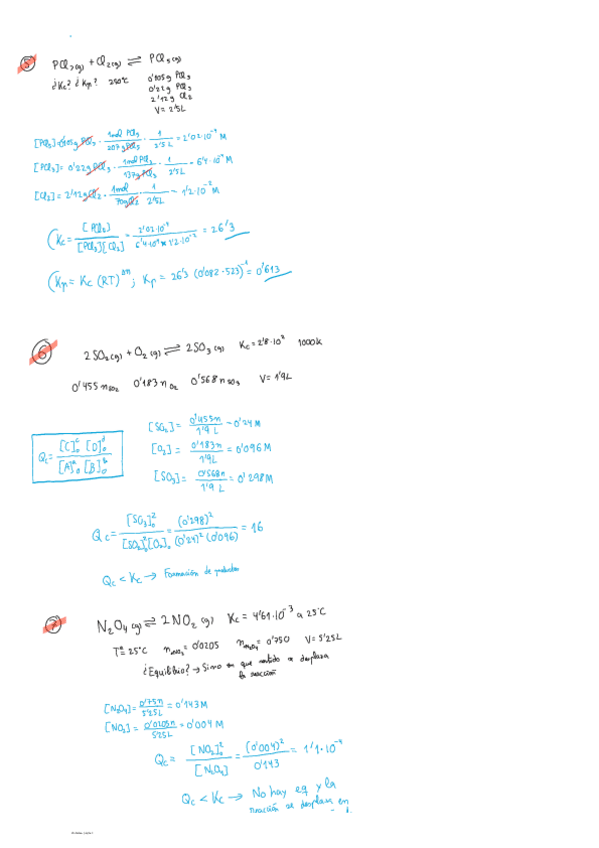 5 PCl₃(g) + Cl₂(g) ⇌ PCl₅(g)
¿Kc? ¿Kp? 250°C 0'105g PCl₅
0'22g PCl₃
2'12g Cl₂
V = 2'5L
[PCl₅] = 0'105g PCl₅ · 1mol PCl₅ / 207g PCl₅ · 1 / 2'5L = 2'02·10⁻⁴ M
[PCl₃] = 0'22g PCl₃ · 1mol PCl₃ / 137g PCl₃ · 1 / 2'5L = 6'4·10⁻⁴ M
[Cl₂] = 2'12g Cl₂ · 1mol / 70g Cl₂ · 1 / 2'5L = 1'2·10⁻² M
Kc = [PCl₅] / [PCl₃][Cl₂] = 2'02·10⁻⁴ / 6'4·10⁻⁴ · 1'2·10⁻² = 26'3
Kp = Kc (RT)^Δn ; Kp = 26'3 (0'082·523)⁻¹ = 0'613
6 2SO₂(g) + O₂(g) ⇌ 2SO₃(g) Kc = 2'8·10² 1000K
0'455 n SO₂ 0'183 n O₂ 0'568 n SO₃ V = 1'9L
[SO₂] = 0'455n / 1'9L = 0'24 M
[O₂] = 0'183n / 1'9L = 0'096 M
[SO₃] = 0'568n / 1'9L = 0'298 M
Qc = [C]₀ᶜ [D]₀ᵈ / [A]₀ᵃ [B]₀ᵇ
Qc = [SO₃]₀² / [SO₂]₀² [O₂]₀ = (0'298)² / (0'24)² (0'096) = 16
Qc < Kc → Formación de productos
7 N₂O₄(g) ⇌ 2NO₂(g) Kc = 4'61·10⁻³ a 25°C
Tª = 25°C n NO₂ = 0'0205 n N₂O₄ = 0'750 V = 5'25L
¿Equilibrio? → Si no en que sentido se desplaza
la reacción
[N₂O₄] = 0'75n / 5'25L = 0'143M
[NO₂] = 0'0205n / 5'25L = 0'004 M
Qc = [NO₂]₀² / [N₂O₄] = (0'004)² / 0'143 = 1'1·10⁻⁴
Qc < Kc → No hay eq y la
reacción se desplaza en